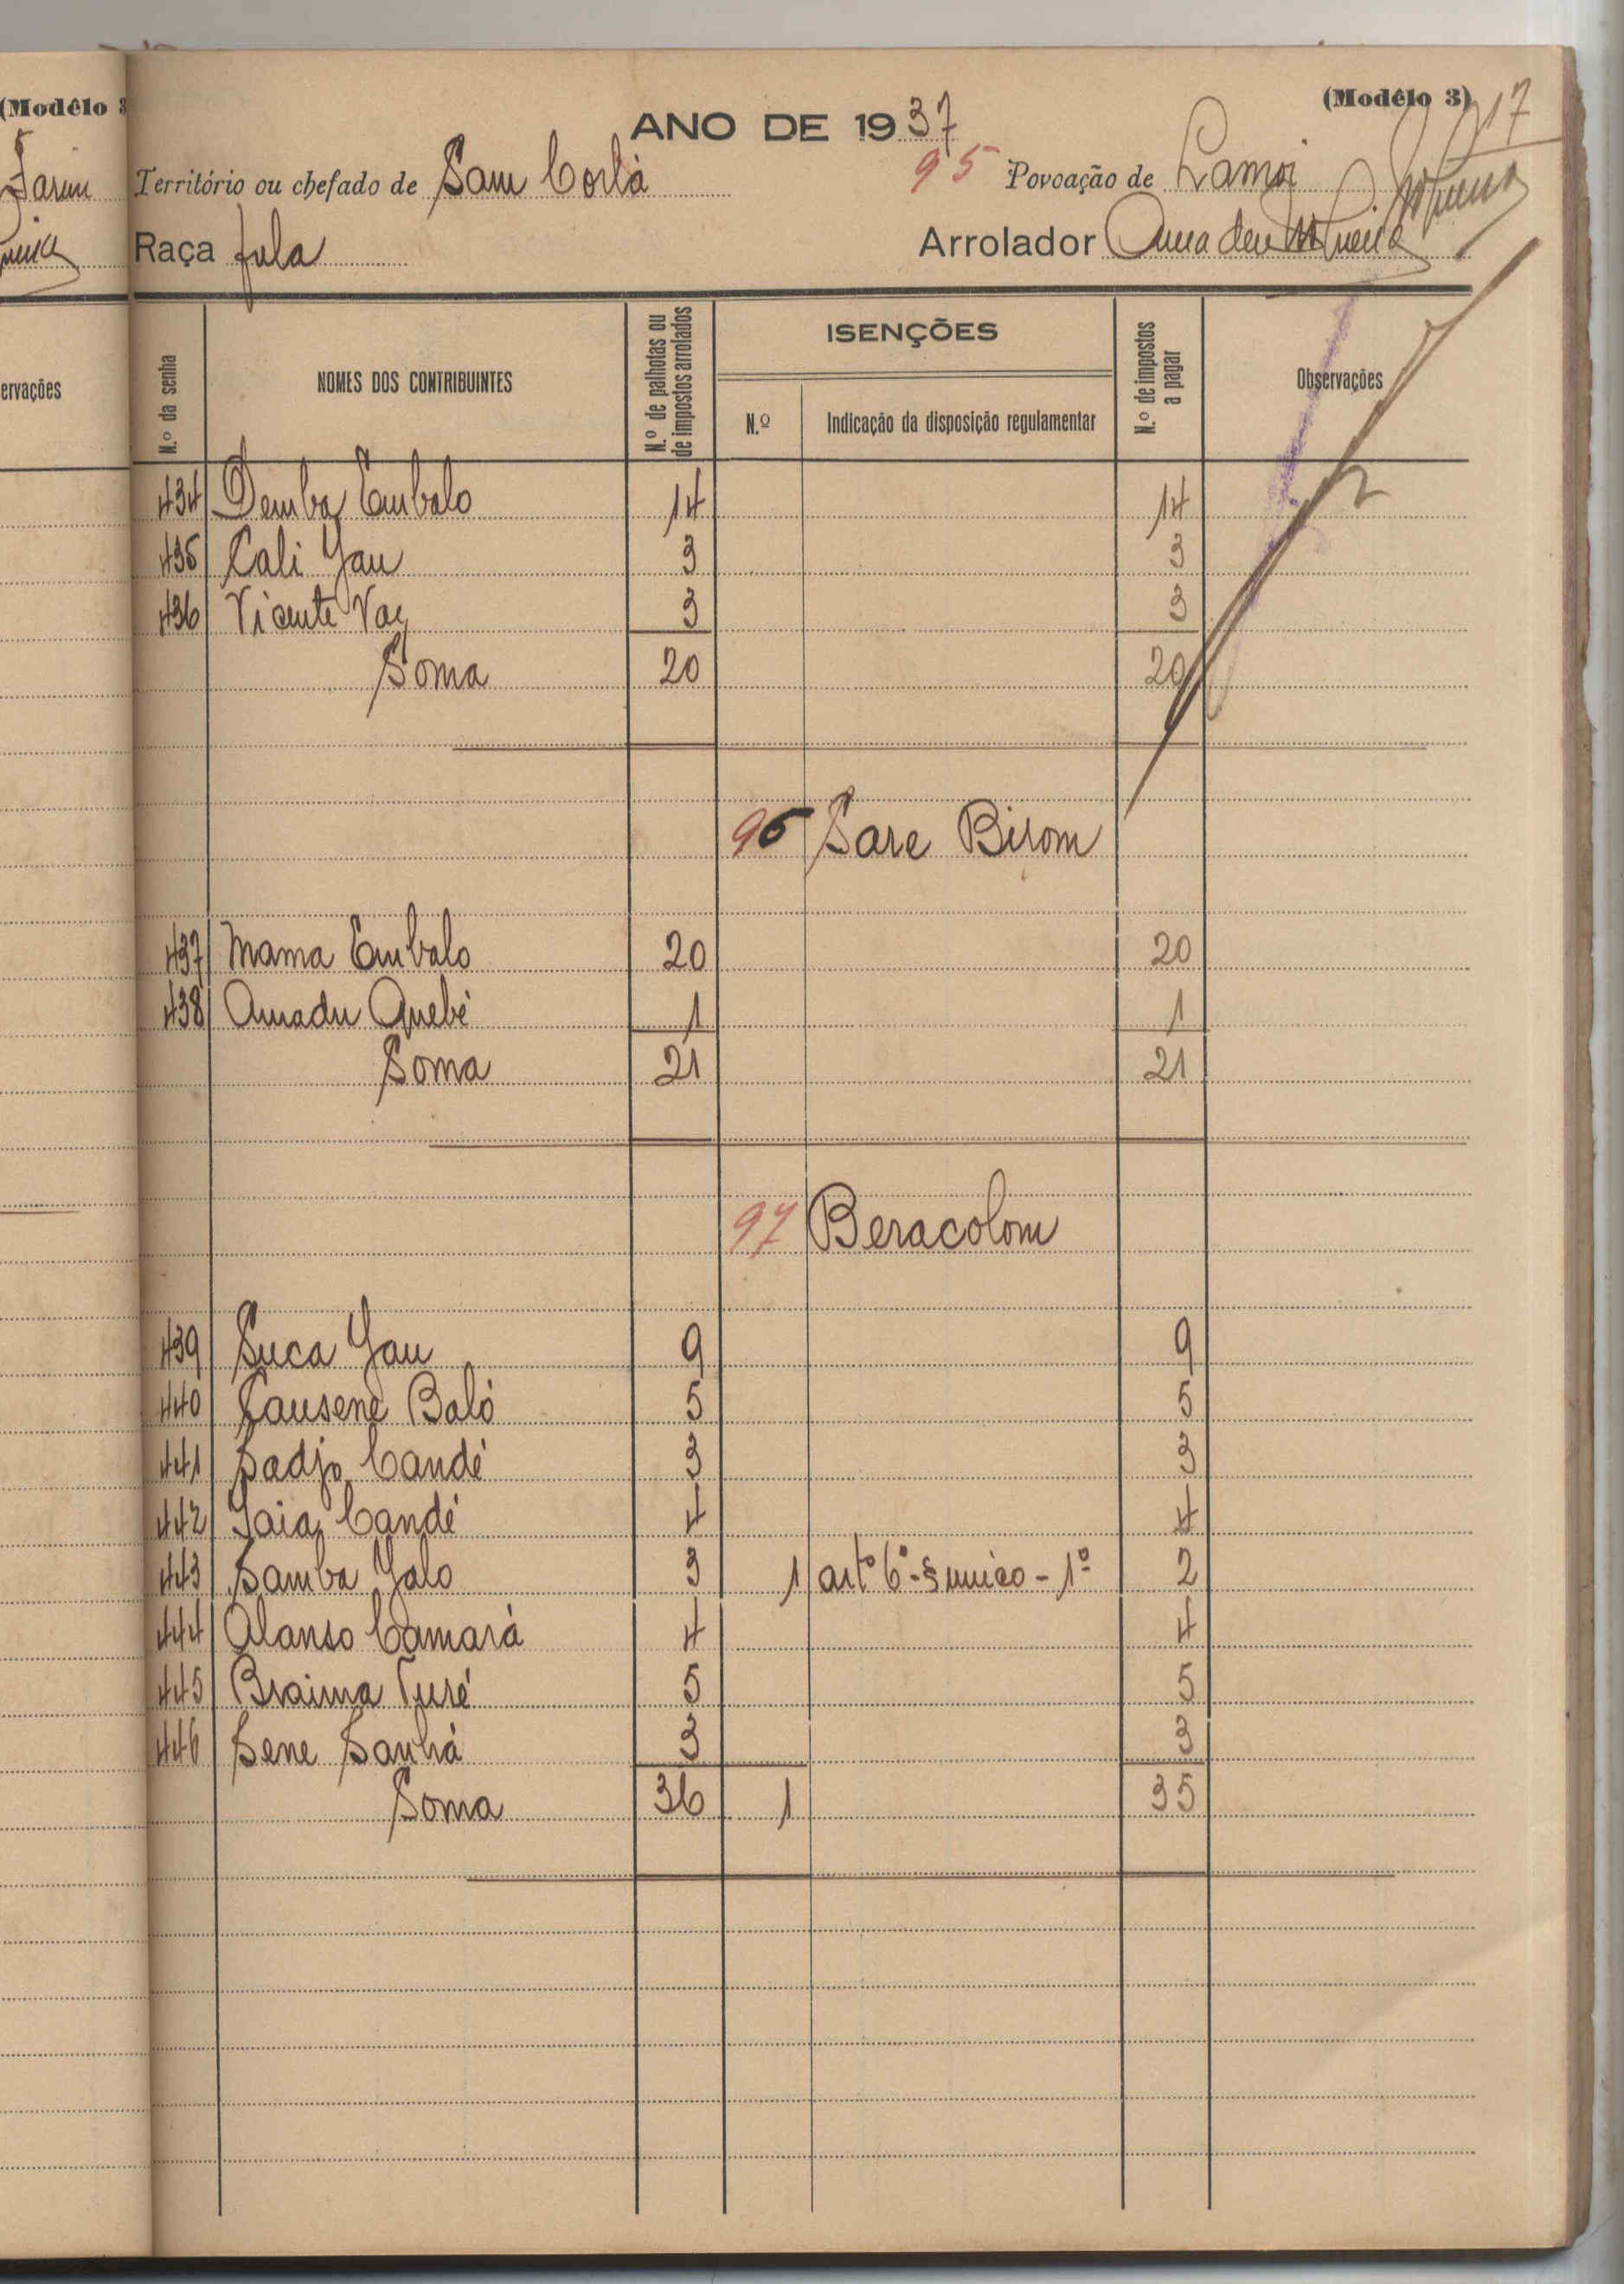 (Modêlo 3
Farim
ervações
(Modêlo 3)
17
ANO DE 1937
Território ou chefado de Sam Corlá
95 Povoação de Lamoi
Raça fula
Arrolador
N.º da senha
NOMES DOS CONTRIBUINTES
N.º de palhotas ou de impostos arrolados
ISENÇÕES
N.º
Indicação da disposição regulamentar
N.º de impostos a pagar
Observações
434 Demba Embalo 14 14
435 Cali Jau 3 3
436 Vicente Vaz 3 3
Soma 20 20
96 Sare Birom
437 Mama Embalo 20 20
438 Amadu Quebé 1 1
Soma 21 21
97 Beracolom
439 Suca Jau 9 9
440 Lausene Baló 5 5
441 Sadjo Candé 3 3
442 Jaia Candé 4 4
443 Samba Jalo 3 1 artº 6º - § unico - 1º 2
444 Alanso Camará 4 4
445 Braima Turé 5 5
446 Sene Sanhá 3 3
Soma 36 1 35